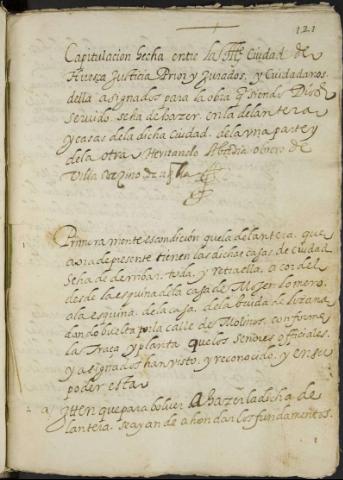 121
Capitulacion hecha entre la Ille Ciudad de
Huesca Justicia Prior y Jurados, y Ciudadanos
della asignados para la obra q siendo Dios
servido se ha de hazer en la delantera
y casas de la dicha Ciudad, de la vna parte y
de la otra Abadia obrero de
Villa vezino de
Primeramente es condicion que la delantera que
de presente tienen las dichas casas de Ciudad
se ha de derribar toda, y
desde la esquina de la casa de Mosen Lomero
o la esquina de la casa, de la biuda de
dando buelta por la calle de Molinos, conforme
la Traça y planta que los Señores officiales
y asignados han visto, y reconocido, y en su
poder esta
2 Ytten que para boluer a hazer la dicha de
lantera, se ayan de ahondar los fundamentos